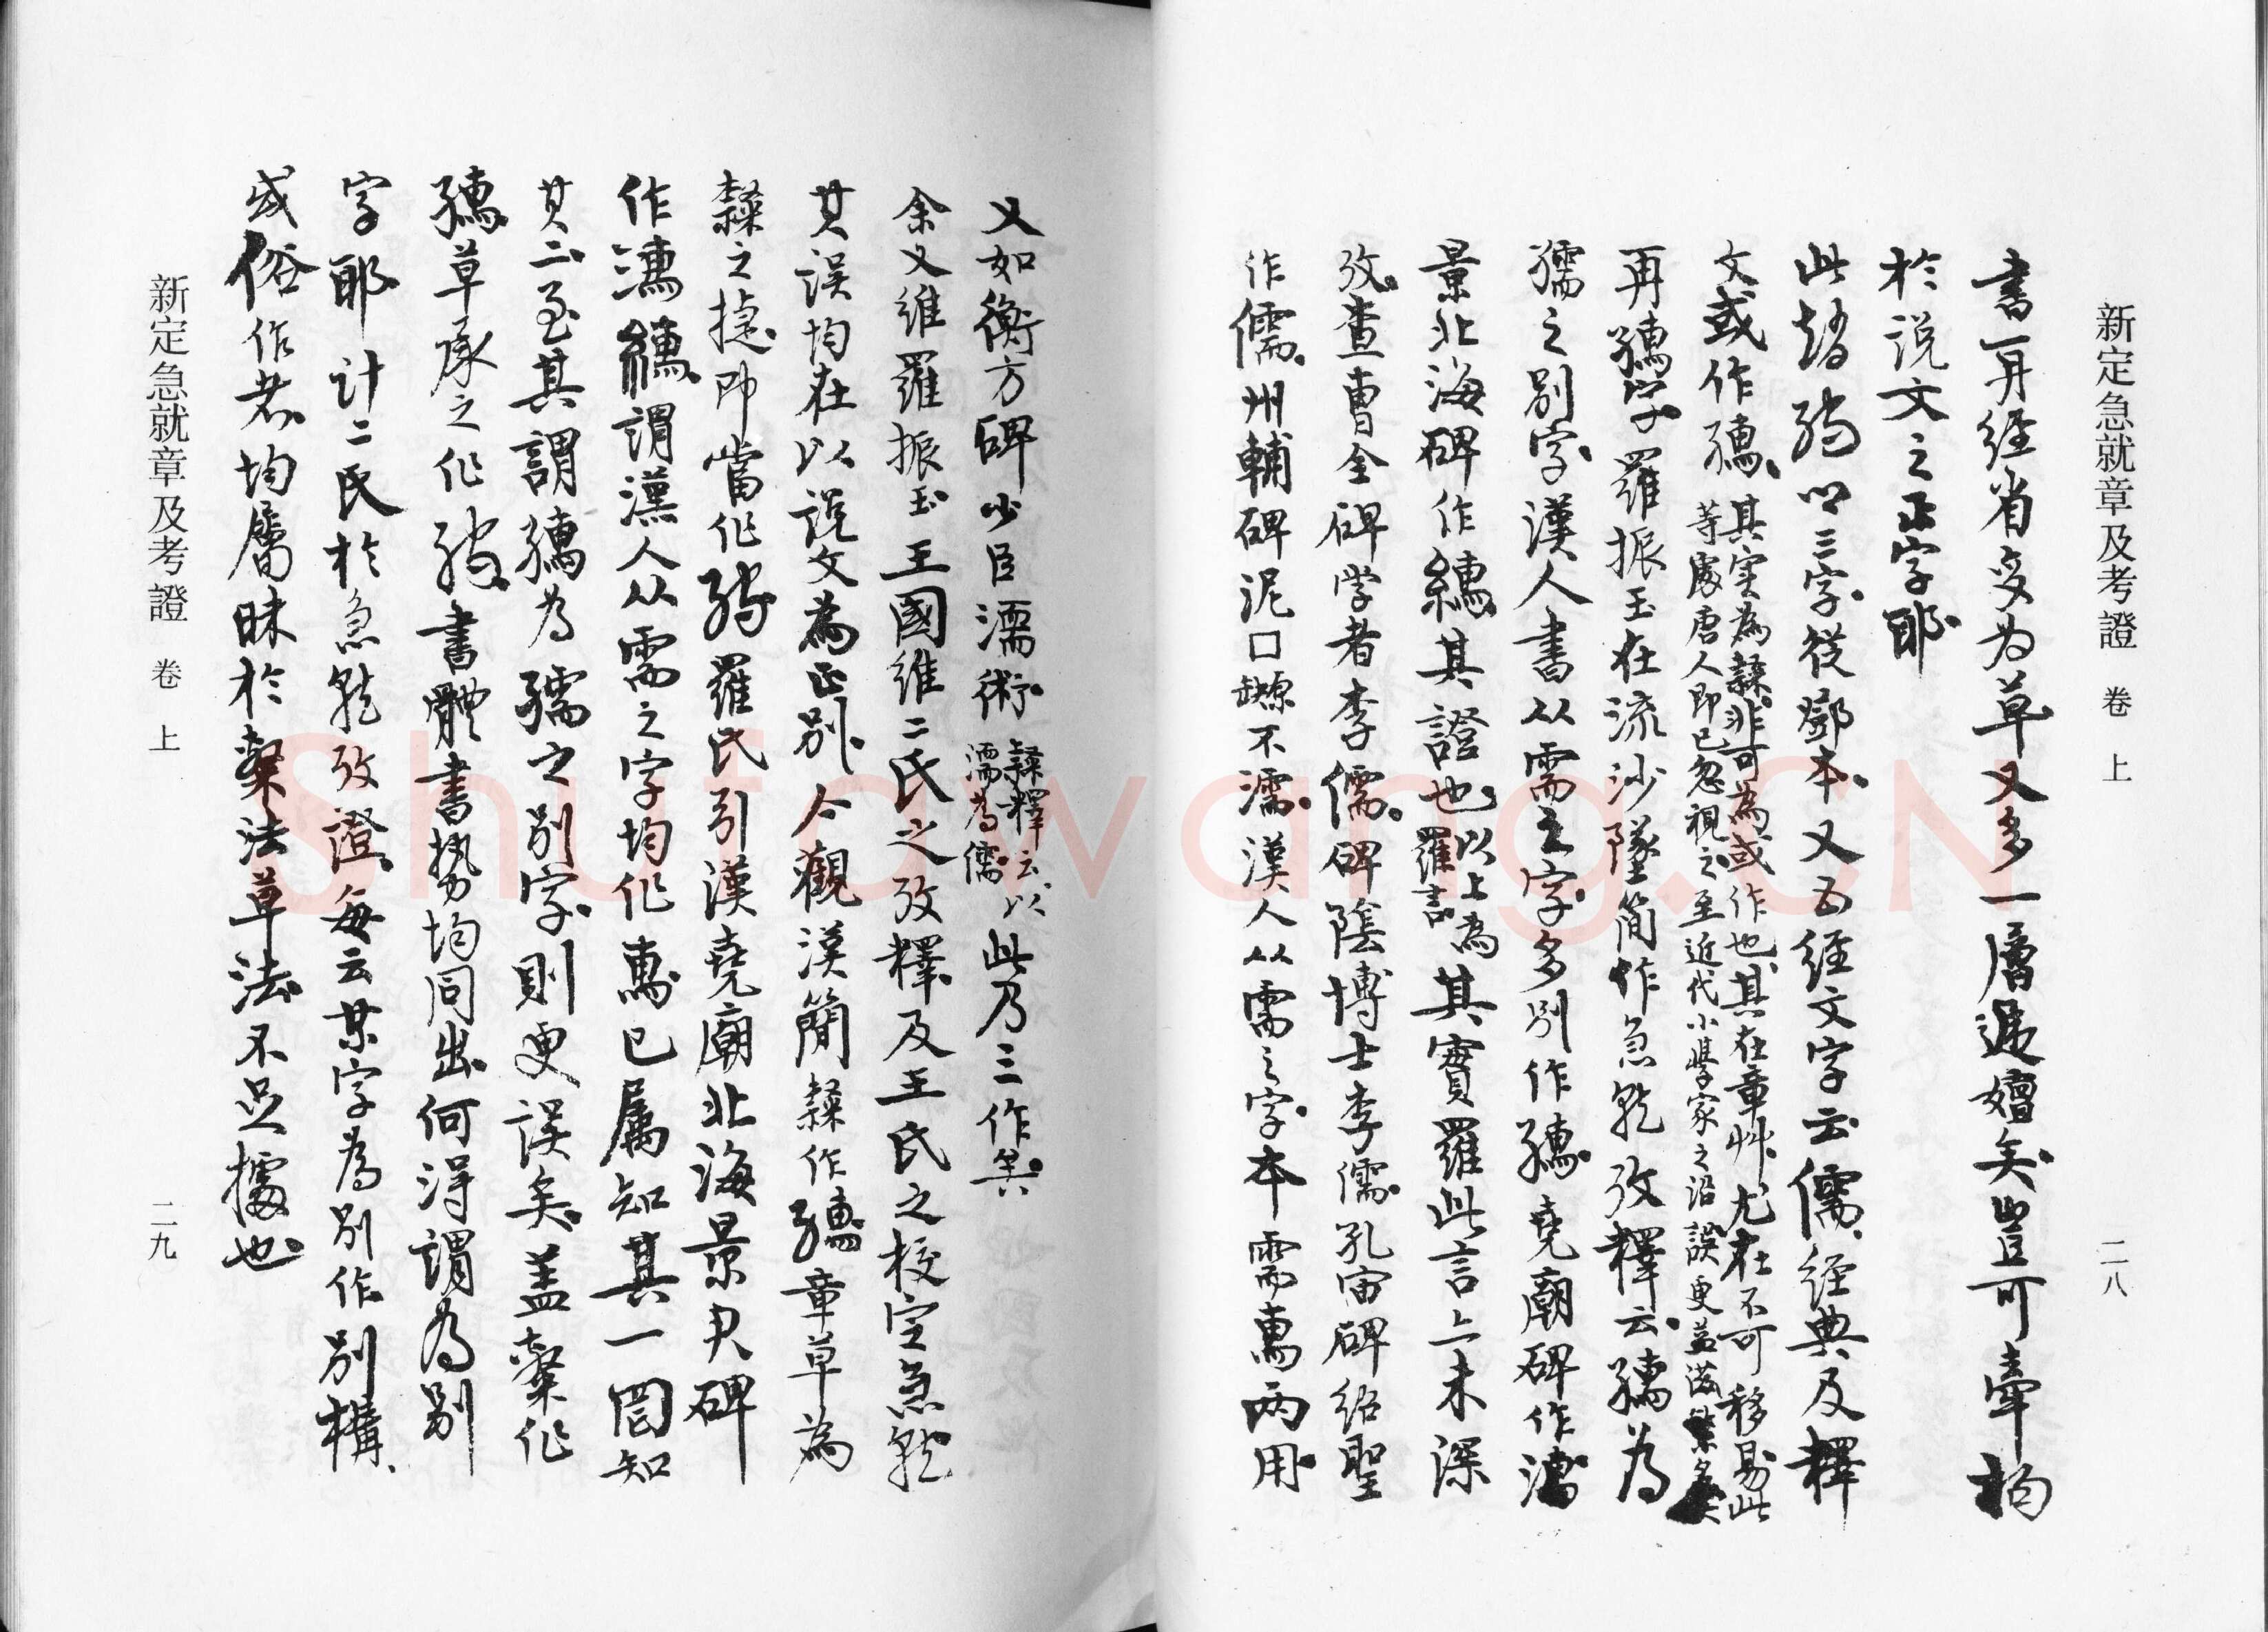 新定急就章及考證 卷上 二八
書再經省變為草又多一層遞嬗矣豈可牽拘
於說文之正字耶
此諸字從鄧本又五經文字云儒經典及釋
文或作𡦗其實為隸非可為或作也其在章艸尤在不可移易此
等處唐人即已忽視之至近代小學家之沿誤更益滋繁矣
再字羅振玉在流沙墜簡作急就攷釋云為
孺之別字漢人書从需之字多別作堯廟碑作
景北海碑作其證也以上為羅書其實羅此言亦未深
攷查曹全碑學者李儒碑陰博士李儒孔宙碑紹聖
作儒州輔碑泥口缺不濡漢人从需之字本需兩用
又如衡方碑少臣濡術隸釋云以濡為儒此乃三作矣
余又維羅振玉王國維二氏之攷釋及王氏之校定急就
其誤均在以說文為正別今觀漢簡隸作章草為
隸之捷即當作羅氏引漢堯廟北海景君碑
作謂漢人从需之字均作已屬知其一罔知
其二至其謂為孺之別字則更誤矣蓋隸作
草承之作書體書勢均同出何得謂為別
字耶計二氏於急就攷證每云某字為別作別構
或俗作者均屬昧於隸法草法不足據也
新定急就章及考證 卷上 二九